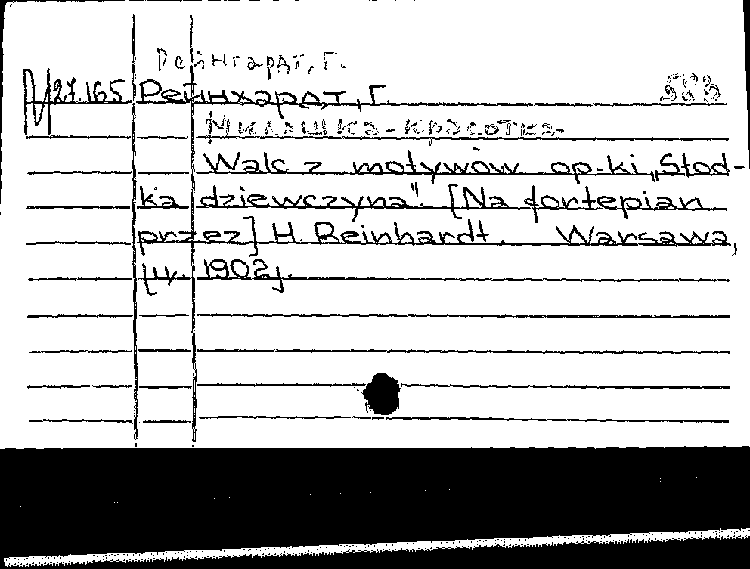 Рейнгардт, Г.
27.165 Рейнхардт, Г.
Милашка-красотка
Walc z motywów op-ki „Słod-
ka dziewczyna". [Na fortepian
przez] H. Reinhardt. Warsawa,
1902].